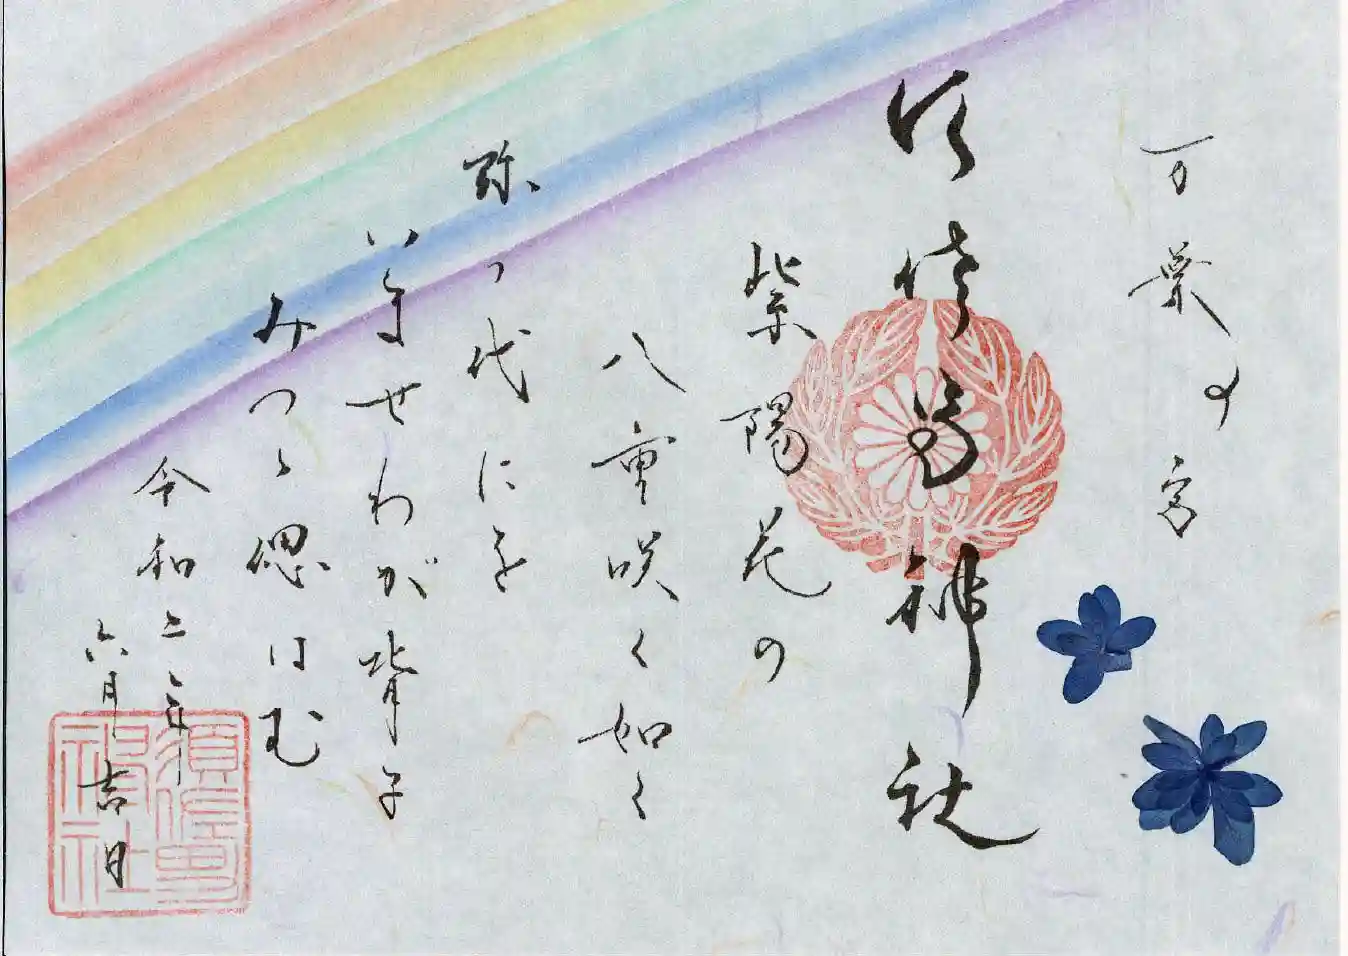 万葉の宮
須佐男神社
紫陽花の
八重咲く如く
弥つ代にを
いませわが背子
みつゝ偲はむ
令和二年
六月吉日
須佐男神社